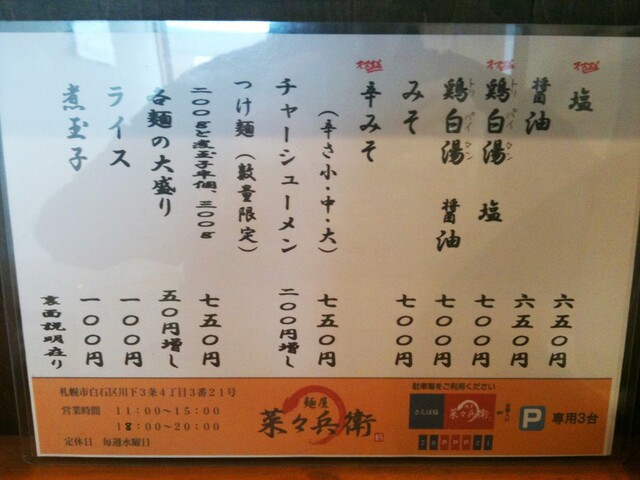 塩 六五〇円
醤油 六五〇円
鶏白湯 塩 七〇〇円
トリ パイ タン
鶏白湯 醤油 七〇〇円
トリ パイ タン
みそ 七〇〇円
辛みそ
(辛さ小・中・大) 七五〇円
チャーシューメン 二〇〇円増し
つけ麺(数量限定)
二〇〇gと煮玉子半個、三〇〇g 七五〇円
各麺の大盛り 五〇円増し
ライス 一〇〇円
煮玉子 一〇〇円
裏面説明在り
札幌市白石区川下3条4丁目3番21号
営業時間 11:00~15:00
18:00~20:00
定休日 毎週水曜日
麺屋
菜々兵衛
駐車場をご利用ください
菜々兵衛
P 専用3台